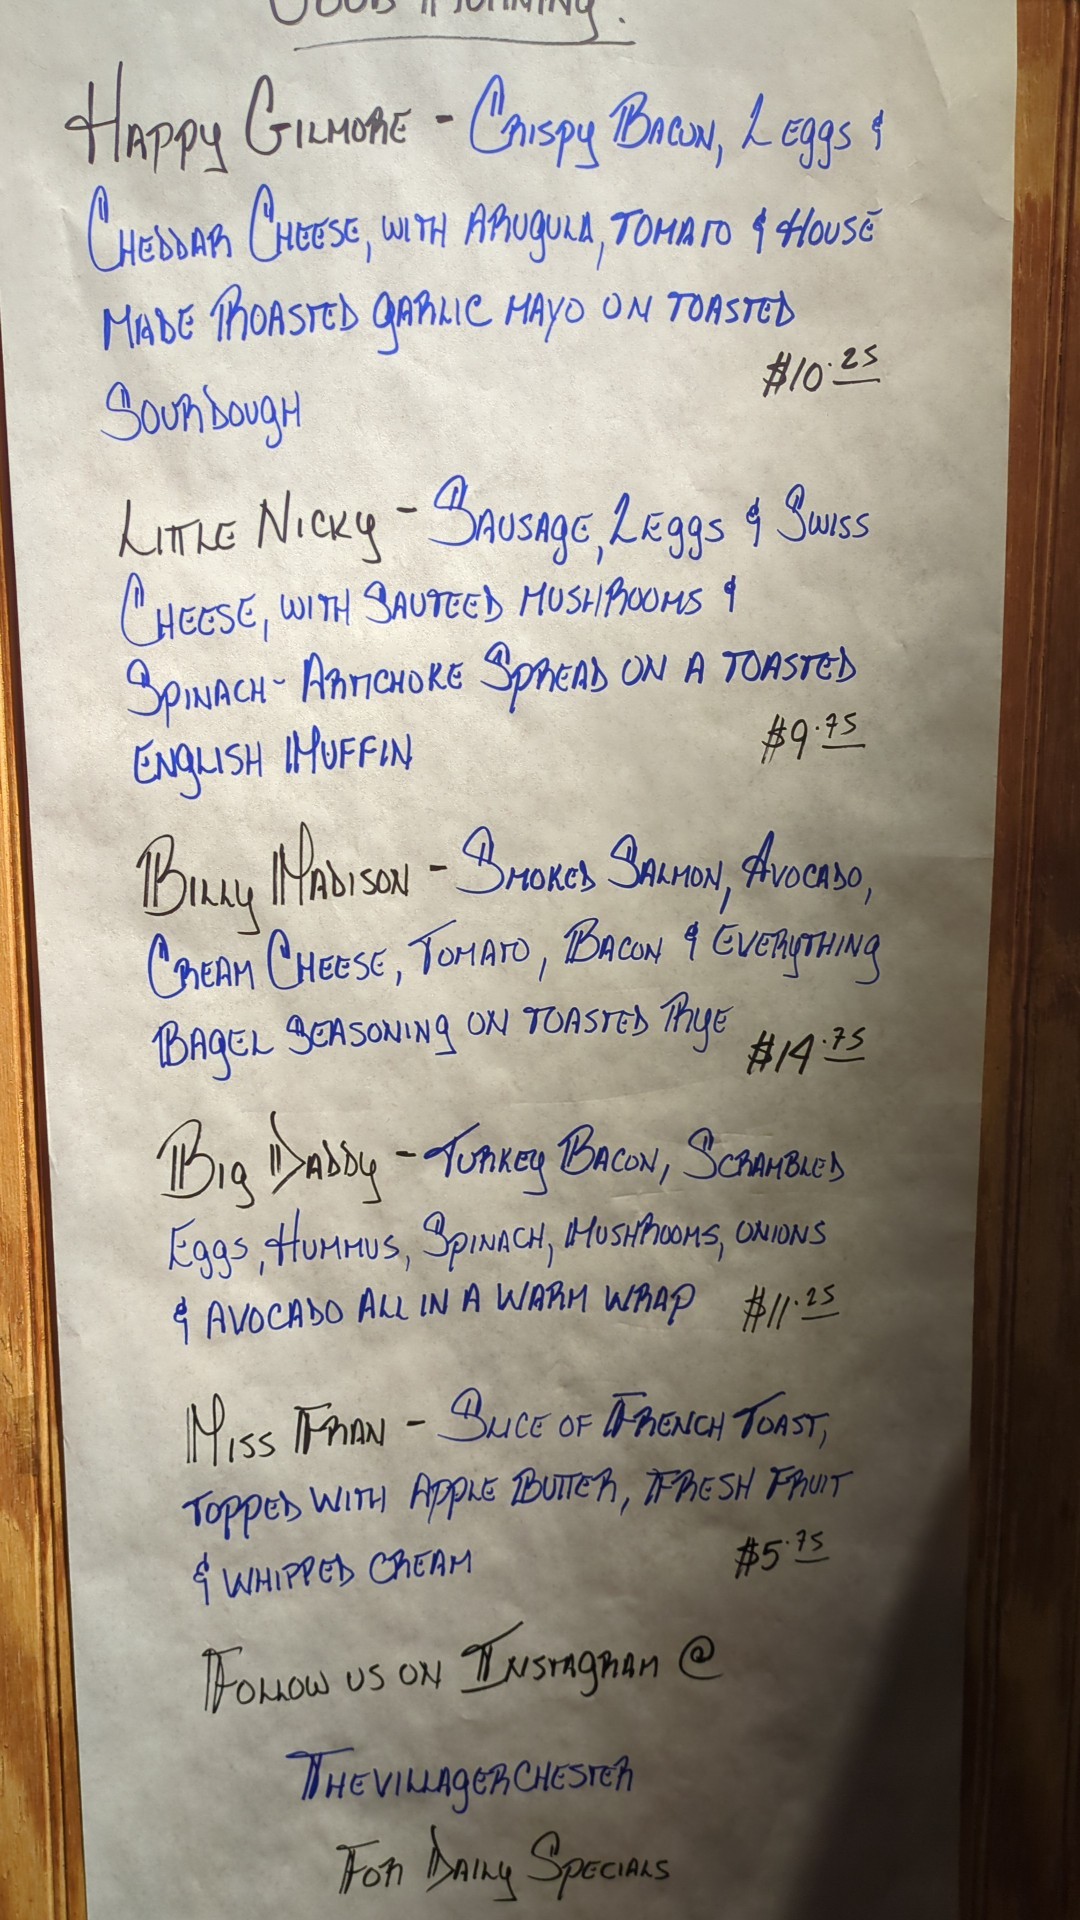 Good Morning!
Happy Gilmore - Crispy Bacon, 2 eggs &
Cheddar Cheese, with arugula, tomato & House
Made Roasted garlic mayo on toasted
Sourdough
$10.25
Little Nicky - Sausage, 2 eggs & Swiss
Cheese, with sauteed mushrooms &
Spinach-Artichoke Spread on a toasted
English Muffin
$9.75
Billy Madison - Smoked Salmon, Avocado,
Cream Cheese, Tomato, Bacon & Everything
Bagel seasoning on toasted Rye
$14.75
Big Daddy - Turkey Bacon, Scrambled
Eggs, Hummus, Spinach, Mushrooms, onions
& avocado all in a warm wrap
$11.25
Miss Fran - Slice of French Toast,
topped with apple butter, fresh fruit
& whipped cream
$5.75
Follow us on Instagram @
Thevillagerchester
For Daily Specials